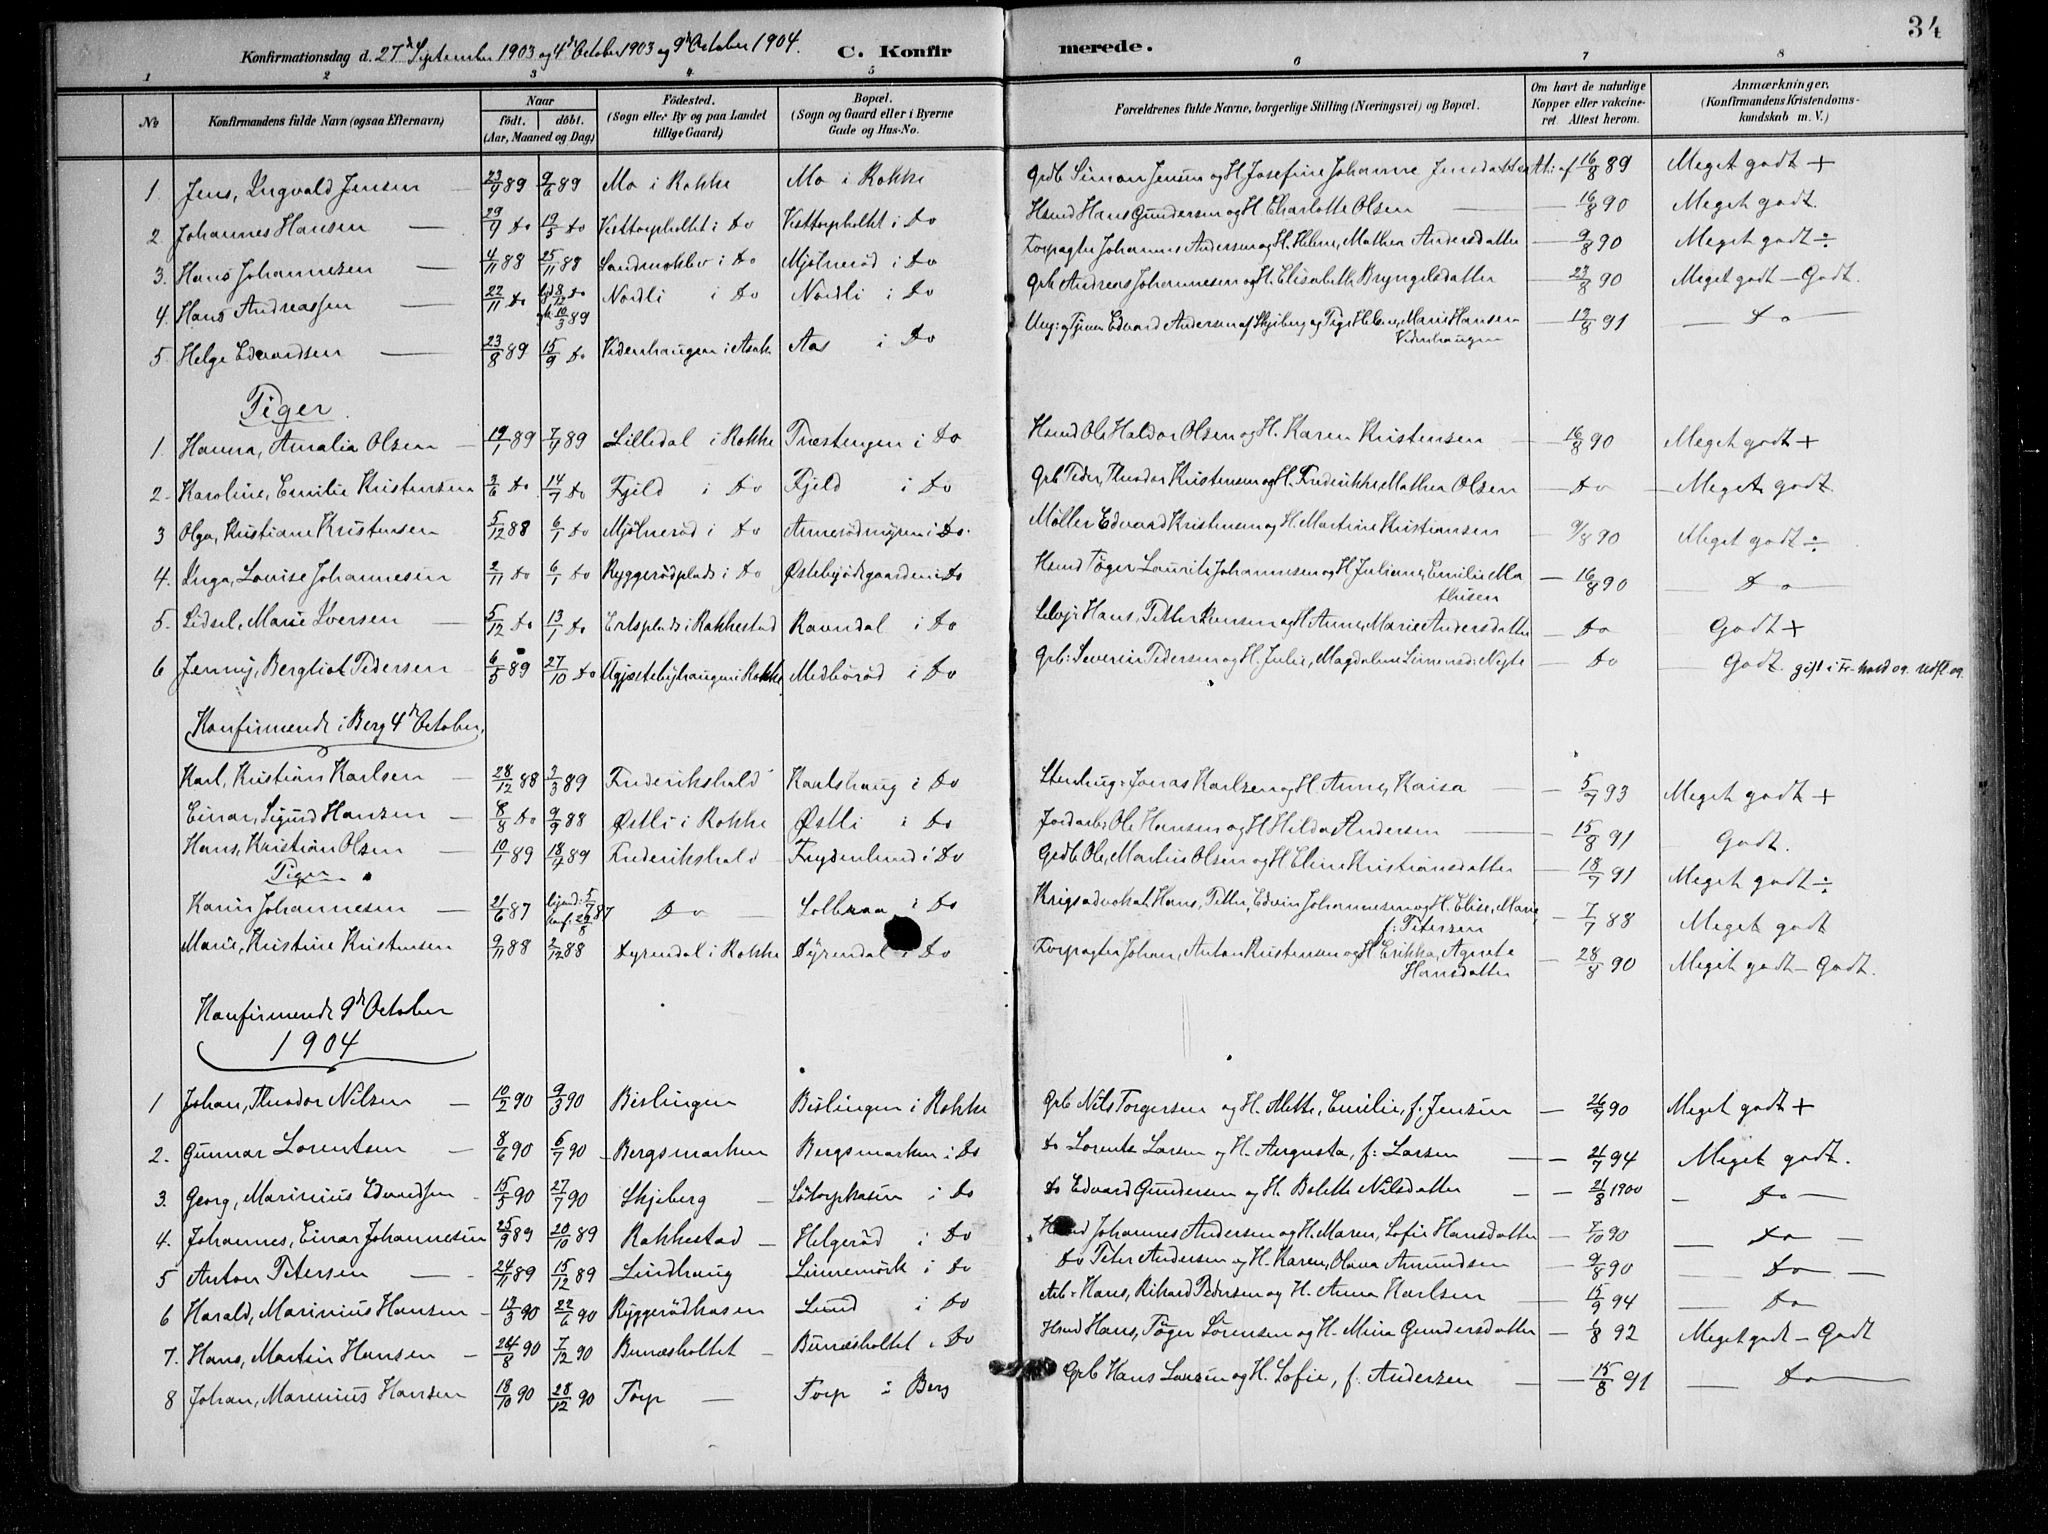 34
Konfirmationsdag d. 27de September 1903 og 4de October 1903 og 9de October 1904. C. Konfirmerede.
1 2 3 4 5 6 7 8
No Konfirmandens fulde Navn (ogsaa Efternavn) Naar født. døbt. (Aar, Maaned og Dag) Fødested. (Sogn eller By og paa Landet tillige Gaard) Bopæl. (Sogn og Gaard eller i Byerne Gade og Hus-No. Forældrenes fulde Navne, borgerlige Stilling (Næringsvei) og Bopæl. Om havt de naturlige Kopper eller vakcineret. Attest herom. Anmærkninger. (Konfirmandens Kristendomskundskab m. V.)
1. Jens, Ingvald Jensen — 23/4 89 9/6 89 Mo i Rokke Mo i Rokke Grdb Simon Jensen og H. Josefine Johanne Jensdatter At: af 16/8 89 Meget godt +
2. Johannes Hansen — 29/4 do 19/5 do Vesttorpholtet i do Vesttorpholtet i do Hsmd Hans Gundersen og H. Charlotte Olsen — 16/8 90 Meget godt.
3. Hans Johannesen — 4/11 88 25/11 88 i do Mjølnerød i do Forpagter Johannes Andersen og H. Helene, Mathea Andersdatter — 9/8 90 Meget godt ÷
4. Hans Andreassen — 22/11 do 8/12 do 10/3 89 Nordli i do Nordli i do Grb Andreas Johannesen og H. Elisabeth Bryngelsdatter — 23/8 90 Meget godt – Godt.
5. Helge Edvardsen — 23/8 89 15/9 do Videnhaugen i Asak Aas i do Ung: og Tjener Edvard Andersen af Skjeberg og Pige Helene, Marie Hansen Videnhaugen — 19/8 91 — do —
Piger
1. Hanna, Amalia Olsen — 19/1 89 7/4 89 Lilledal i Rokke Træstengen i do Hsmd Ole Haldor Olsen og H. Karen Kristensen — 16/8 90 Meget godt +
2. Karoline, Emilie Kristensen 3/6 do 14/7 do Fjeld i do Fjeld i do Grb Peder, Theodor Kristensen og H. Frederikke Mathea Olsen — do — Meget godt
3 Olga, Kristiane Kristensen 5/12 88 6/1 do Mjølnerød i do Arnerødmyren i do. Møller Edvard Kristensen og H. Martine Kristiansen 9/8 90 Meget godt ÷
4. Inga, Lovise Johannesen 2/11 do 6/1 do Ryggerødplads i do Østebyødegaarden i do Hsmd Tøger Laurits Johannesen og H. Juliane, Emilie Mathisen — 16/8 90 — do —
5. Sidsel, Marie Iversen — 5/12 do 13/1 do Ertsplads i Rakkestad Ravndal i do Hans, Petter Iversen og H. Anne, Marie Andersdatter — do Godt +
6 Jenny, Bergliot Pedersen 6/5 89 27/10 do i Rokke Medbørød i do Grb: Severin Pedersen og H. Julie, Magdalene — do — Godt. gift i Fr-hald
Konfirmerede i Berg 4de October.
Karl, Kristian Karlsen — 28/12 88 3/3 89 Frederikshald Karlshaug i do Stenhug: Jonas Karlsen og H. Anne, Kaisa — 5/7 93 Meget godt +
Einar, Sigurd Hansen — 8/8 do 9/9 88 Østli i Rokke Østli i do Jordarb: Ole Hansen og H. Hilda Andersen — 15/8 91 Godt.
Hans, Kristian Olsen — 10/1 89 Frederikshald Frydenlund i do Grdb Ole, Martin Olsen og H. Eline Kristiansdatter — 18/7 91 Meget godt ÷
Piger
Karin Johannesen — 21/6 87 do i do Krigsadvokat, Hans, Petter, Edvin Johannesen og H. Elise, Marie f: Petersen — 7/7 88 Meget godt
Marie, Kristine Kristensen 9/11 88 2/12 88 Dyrendal i Rokke Dyrendal i do Forpagter Johan, Anton Kristensen og H. Erikka, Agnete Hansdatter — 28/8 90 Meget godt – Godt.
Konfirmerede 9de October
1904
1 Johan, Theodor Nilsen — 10/2 90 9/3 90 Bislingen Bislingen i Rokke Grb Nils Torgersen og H. Alette, Emilie, f: Jensen — 26/7 90 Meget godt +
2. Gunnar Lorentsen — 8/6 90 6/7 90 – Bergsmarken Bergsmarken i do do Lorents Larsen og H. Augusta, f: Larsen — 21/7 94 Meget godt.
3. Georg, Marinius Edvardsen 15/5 90 27/7 90 Skjeberg — i do do Edvard Gundersen og H. Bolette Nilsdatter — 21/8 1900 — do —
4. Johannes, Einar Johannesen 25/9 89 20/10 89 Rakkestad — Helgerød i do Hsmd Johannes Andersen og H. Maren, Sofie Hansdatter — 7/10 90 — do —
5 Anton Petersen — 24/11 89 15/12 89 Lindhaug Linnemørk i do do Peter Andersen og H. Karen, Olava Amundsen — 9/8 90 — do —
6 Harald, Marinius Hansen – 19/3 90 22/6 90 Ryggerødhasen Lund i do Arb: Hans, Rikard Pedersen og H. Anna Karlsen — 15/9 94 — do
7. Hans, Martin Hansen — 24/8 90 7/12 90 Bunæsholtet — Bunæsholtet i do Hsmd Hans, Tøger Sørensen og H. Mina Gundersdatter — 6/8 92 Meget godt – Godt
8 Johan, Marinius Hansen 18/10 90 28/12 90 Torp — Torp i Berg Grb Hans Larsen og H. Sofie, f. Andersen — 15/8 91 — do —